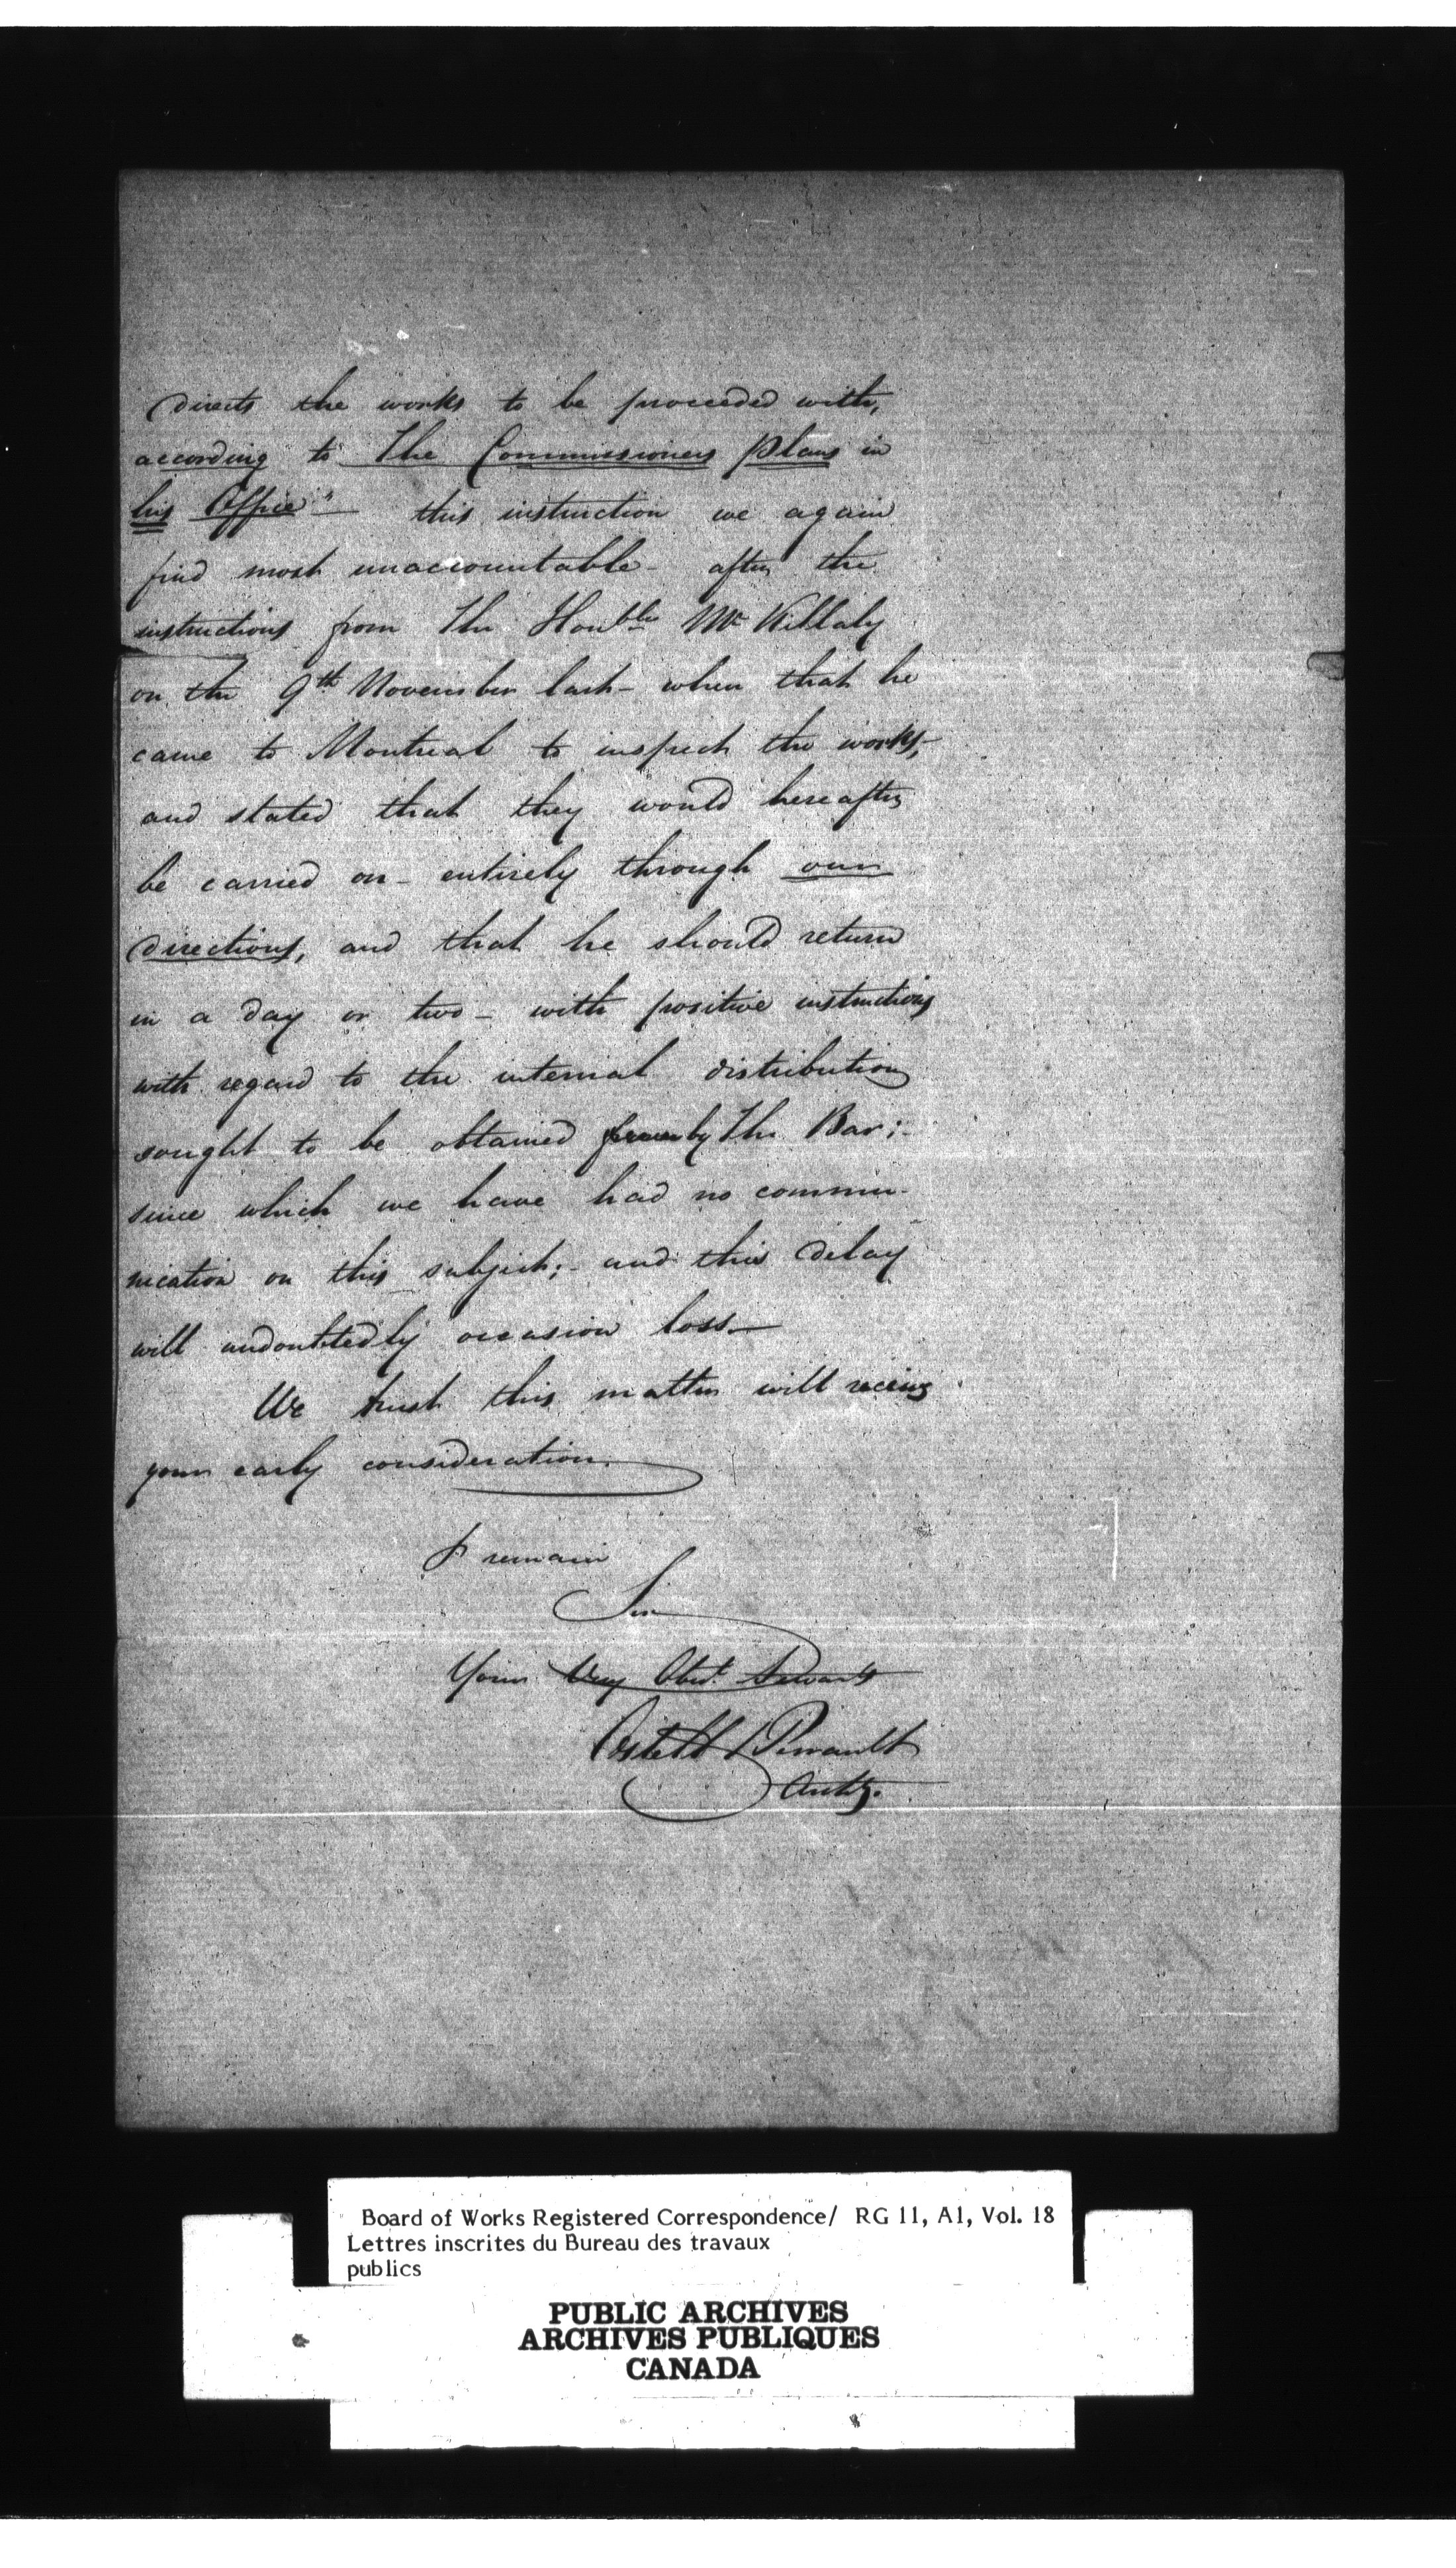 directs the works to be proceeded with,
according to The Commissioners plans in
his Office" — this instruction we again
find most unaccountable - after the
instructions from The Honble Mr Killaly
on the 9th November last - when that he
came to Montreal to inspect the works, -
and stated that they would hereafter
be carried on - entirely through our
directions, and that he should return
in a day or two - with positive instructions
with regard to the internal distribution
sought to be obtained by The Bar; -
since which we have had no commu-
nication on this subject; - and this delay
will undoubtedly occasion loss —
We trust this matter will receive
your early consideration.
I remain
Sir
Your Very Obdt. Servants
Ostell & Perrault
Archts.
Board of Works Registered Correspondence/ RG 11, A1, Vol. 18
Lettres inscrites du Bureau des travaux
publics
PUBLIC ARCHIVES
ARCHIVES PUBLIQUES
CANADA